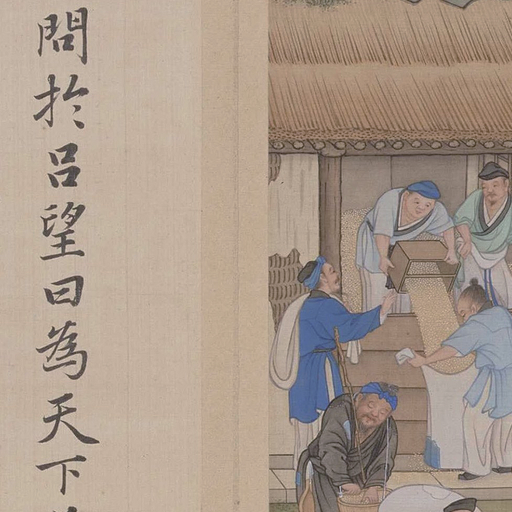 問於呂望曰為天下